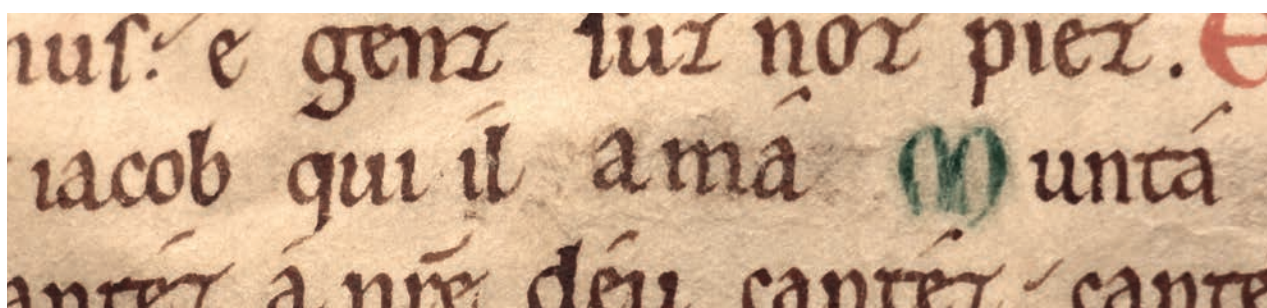 nuſ: e genz ſuz noz piez. E
iacob qui il amá Muntá
antéz á nr̄e déu cantéz cante